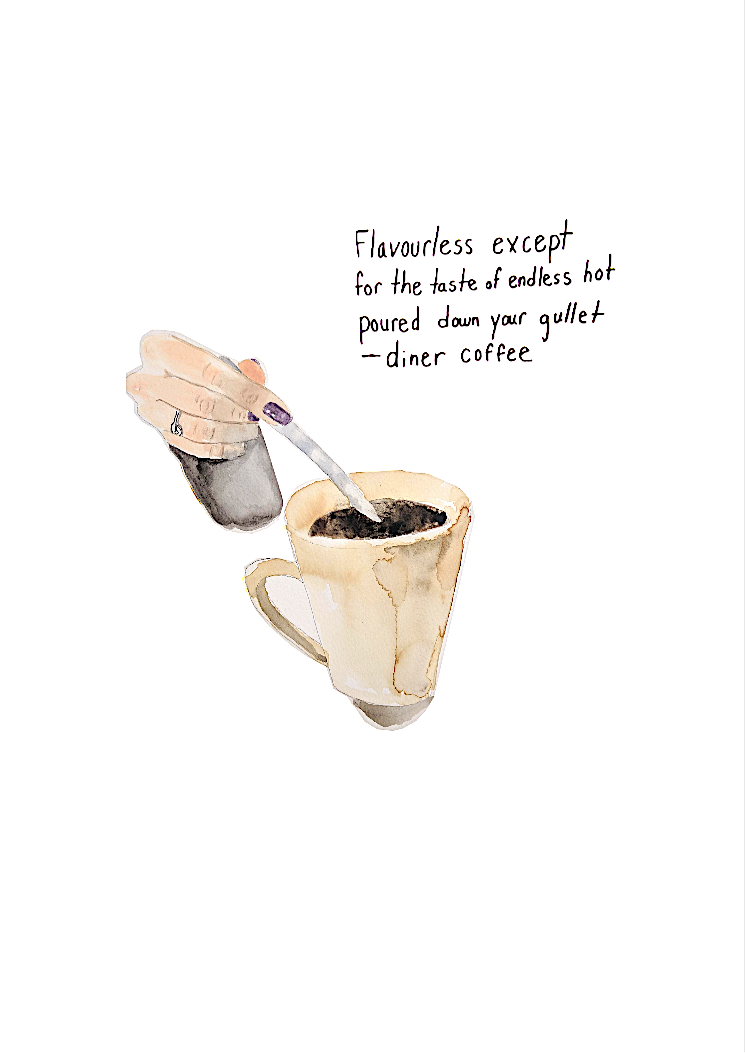 Flavourless except
for the taste of endless hot
poured down your gullet
—diner coffee